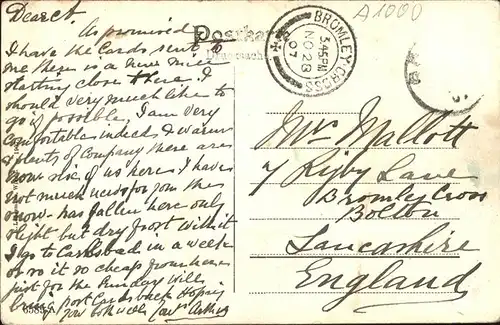 Dear A.
As promised
I have the Cards sent to
me there is a new mill
starting close there. I
should very much like to
go if possible, I am very
Comfortable indeed & warm
& plenty of Company there are
now six of us here. I have
not much news for you the
snow has fallen here only
slight but dry frost with it
I go to Carlsbad in a week
or so it so cheap from here
just for the Sunday Will
bring post Cards back Hoping
you both well
Arthur
Postkarte
Drucksache
BROMLEY CROSS
3.45 PM
NO 28
07
A1000
Mrs Mallott
7 Rigby Lane
Bromley Cross
Bolton
Lancashire
England